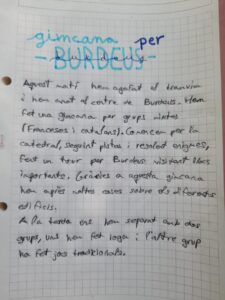 gimcana per
- BURDEUS -
Aquest matí hem agafat el tramvia
i hem anat al centre de Burdeus. Hem
fet una gimcana per grups mixtes
(Francesos i catalans). Comencem per la
catedral, seguint pistes i resolent enigmes,
fent un tour per Burdeus visitant llocs
importants. Gràcies a aquesta gimcana
hem après moltes coses sobre els diferents
edificis.
A la tarda ens hem separat amb dos
grups, uns hem fet ioga i l'altre grup
ha fet jocs tradicionals.